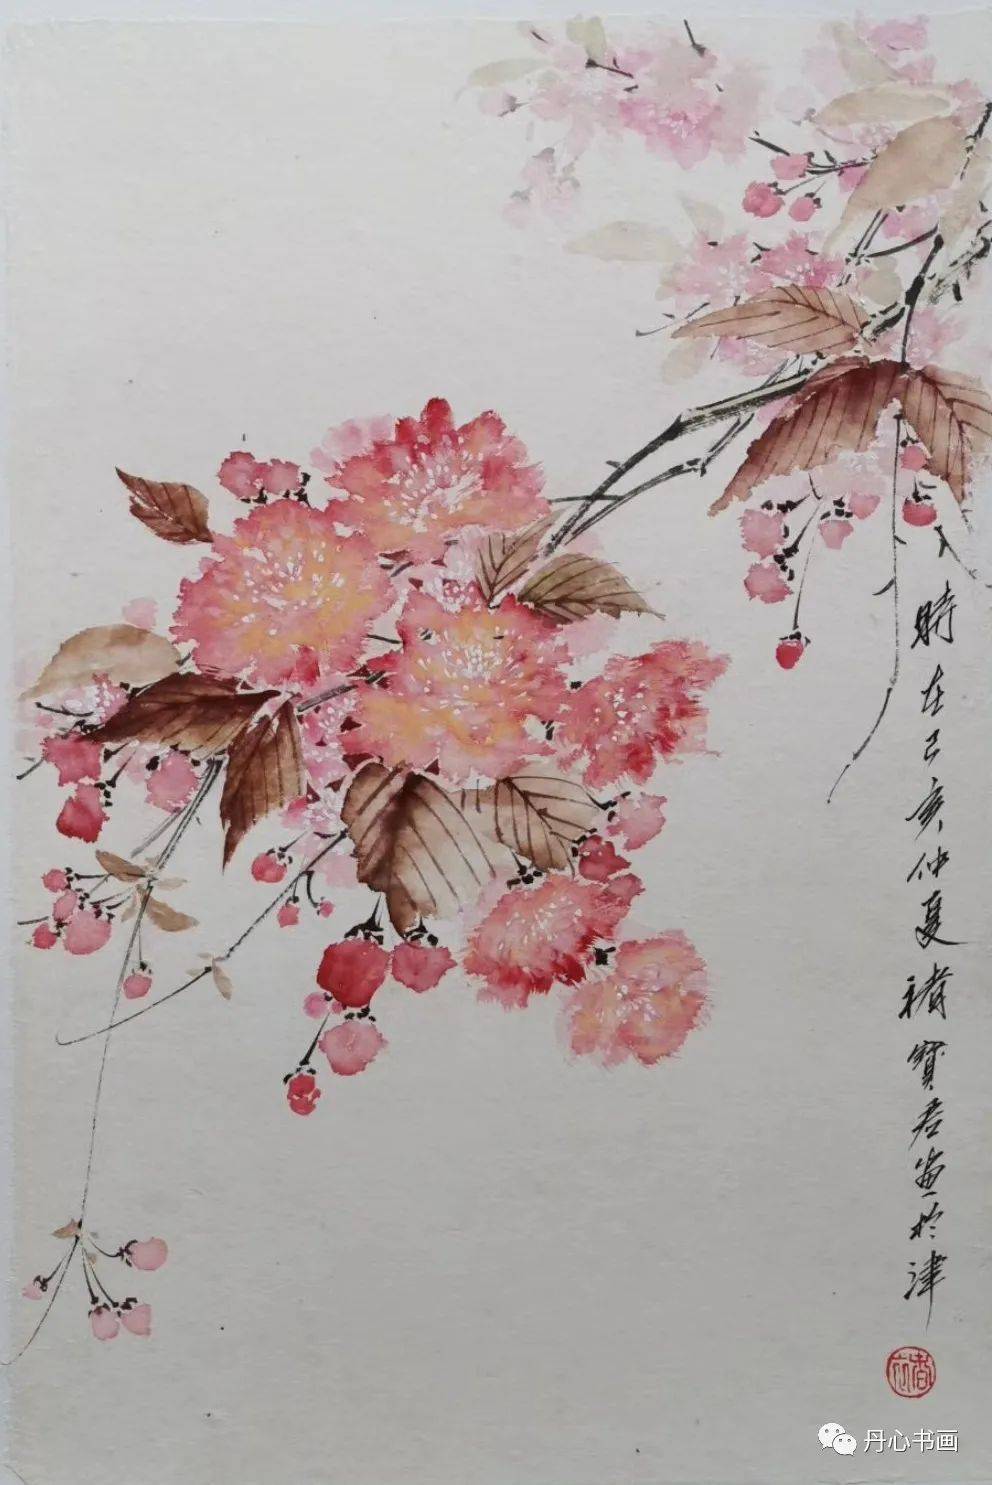 時在己亥仲夏褚寳君畫於津
褚
丹心书画